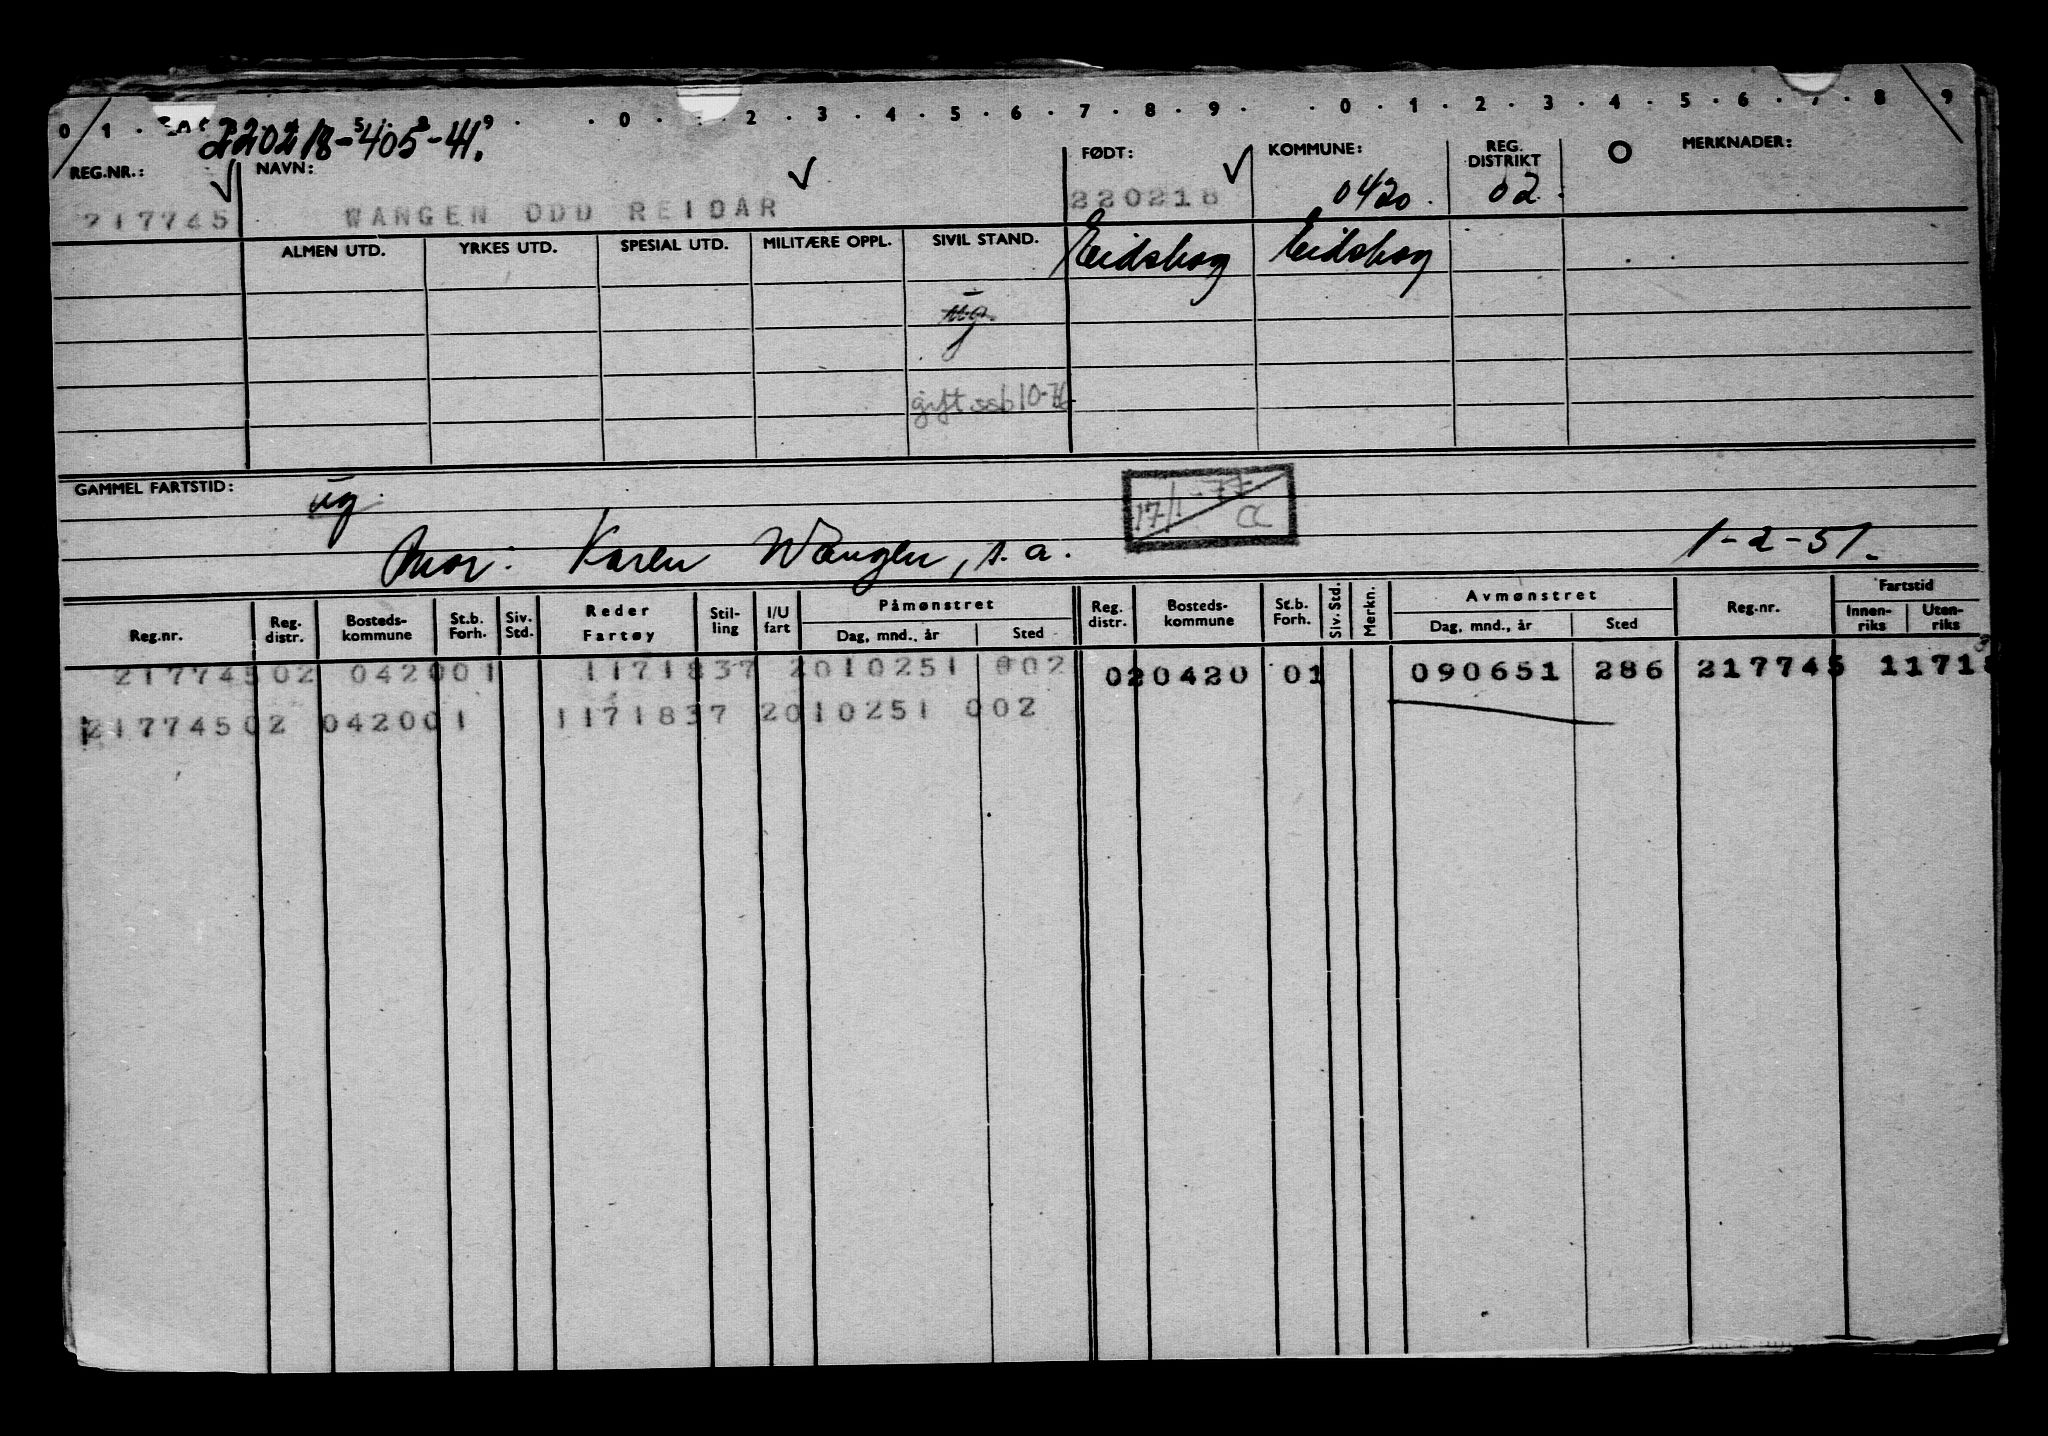 0 1 . 9 . . 0 . . 2 . 3 . 4 . 5 . 6 . 7 . 8 . 9 . . 0 . 1 . 2 . 3 . 4 . 5 . 6 . 7 . 8 9
220218-405-41.
REG.NR.: NAVN: FØDT: KOMMUNE: REG. DISTRIKT MERKNADER:
217745 WANGEN ODD REIDAR 220218 0420. 02.
ALMEN UTD. YRKES UTD. SPESIAL UTD. MILITÆRE OPPL. SIVIL STAND. Eidskog Eidskog
ug.
gift ssb 10-76
GAMMEL FARTSTID: ug 17/1-77 CC
Mor: Karen Wangen, s.a. 1-2-51.
Reg.nr. Reg. distr. Bosteds-kommune St.b. Forh. Siv. Std. Reder Fartøy Stil-ling I/U fart Påmønstret Dag, mnd., år Sted Reg. distr. Bosteds-kommune St.b. Forh. Siv. Std. Merkn. Avmønstret Dag, mnd., år Sted Reg.nr. Fartstid Innen-riks Uten-riks
217745 02 0420 01 1171837 2010251 002 02 0420 01 090651 286 217745 11718
217745 02 0420 01 1171837 2010251 002